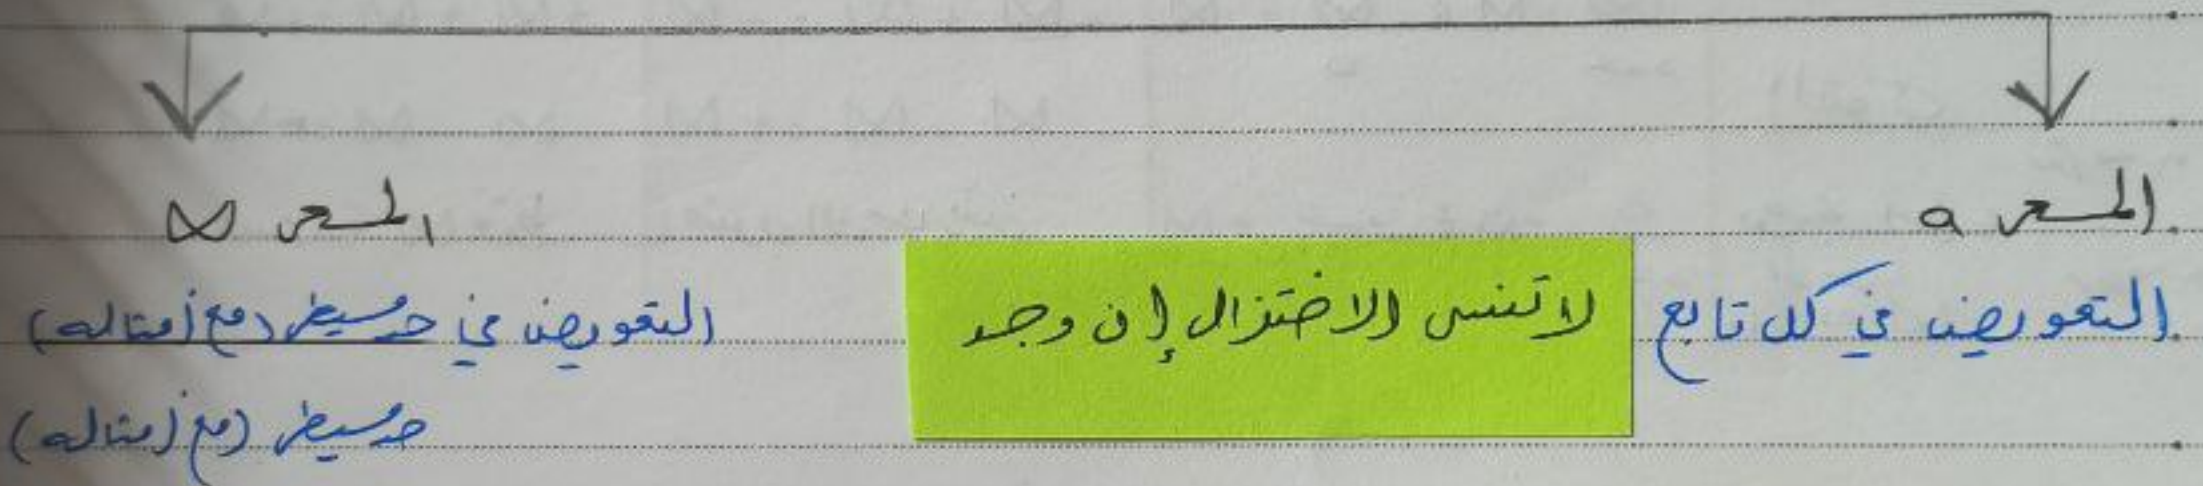 المسعى a
المسعى ∞
التعويض في كل تابع
لا تنسى الاختزال إن وجد
التعويض في حد مسيطر (مع أمثاله)
حد مسيطر (مع أمثاله)